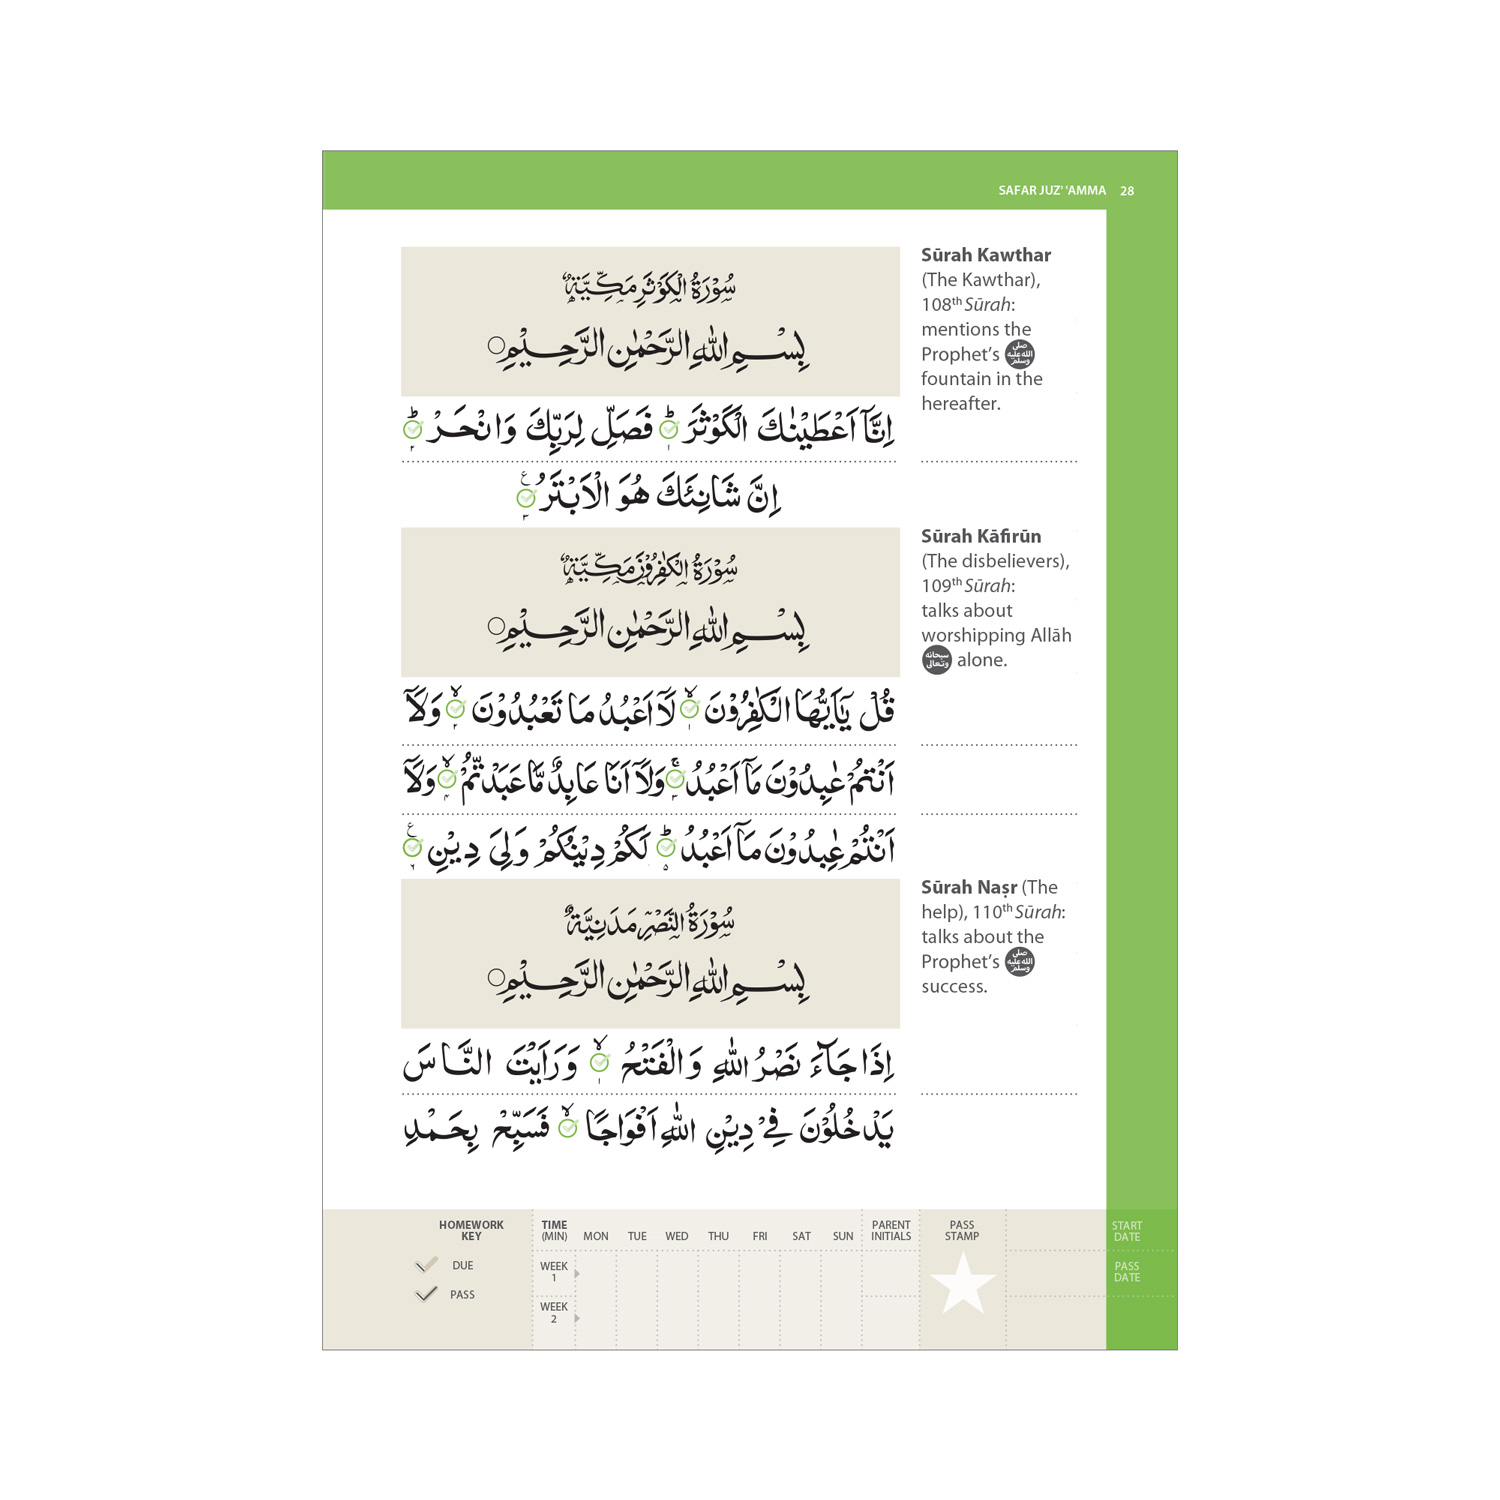 SAFAR JUZ’ ‘AMMA 28
سُوْرَةُ الْكَوْثَرِ مَكِّيَّةٌ
بِسْمِ اللّٰهِ الرَّحْمٰنِ الرَّحِيْمِ
اِنَّاۤ اَعْطَيْنٰكَ الْكَوْثَرَ ؕ ١ فَصَلِّ لِرَبِّكَ وَانْحَرْ ؕ ٢
اِنَّ شَانِئَكَ هُوَ الْاَبْتَرُ ٣ ع
Sūrah Kawthar
(The Kawthar),
108th Sūrah:
mentions the
Prophet’s صلى الله عليه وسلم
fountain in the
hereafter.
سُوْرَةُ الْكٰفِرُوْنَ مَكِّيَّةٌ
بِسْمِ اللّٰهِ الرَّحْمٰنِ الرَّحِيْمِ
قُلْ يٰۤاَيُّهَا الْكٰفِرُوْنَ ۙ ١ لَاۤ اَعْبُدُ مَا تَعْبُدُوْنَ ۙ ٢ وَلَاۤ
اَنْتُمْ عٰبِدُوْنَ مَاۤ اَعْبُدُ ۚ ٣ وَلَاۤ اَنَا عَابِدٌ مَّا عَبَدْتُّمْ ۙ ٤ وَلَاۤ
اَنْتُمْ عٰبِدُوْنَ مَاۤ اَعْبُدُ ؕ ٥ لَكُمْ دِيْنُكُمْ وَلِيَ دِيْنِ ٦ ع
Sūrah Kāfirūn
(The disbelievers),
109th Sūrah:
talks about
worshipping Allāh
سبحانه وتعالى alone.
سُوْرَةُ النَّصْرِ مَدَنِيَّةٌ
بِسْمِ اللّٰهِ الرَّحْمٰنِ الرَّحِيْمِ
اِذَا جَآءَ نَصْرُ اللّٰهِ وَالْفَتْحُ ۙ ١ وَرَاَيْتَ النَّاسَ
يَدْخُلُوْنَ فِيْ دِيْنِ اللّٰهِ اَفْوَاجًا ۙ فَسَبِّحْ بِحَمْدِ
Sūrah Naṣr (The
help), 110th Sūrah:
talks about the
Prophet’s صلى الله عليه وسلم
success.
HOMEWORK KEY
DUE
PASS
TIME (MIN) MON TUE WED THU FRI SAT SUN PARENT INITIALS PASS STAMP START DATE
WEEK 1
PASS DATE
WEEK 2